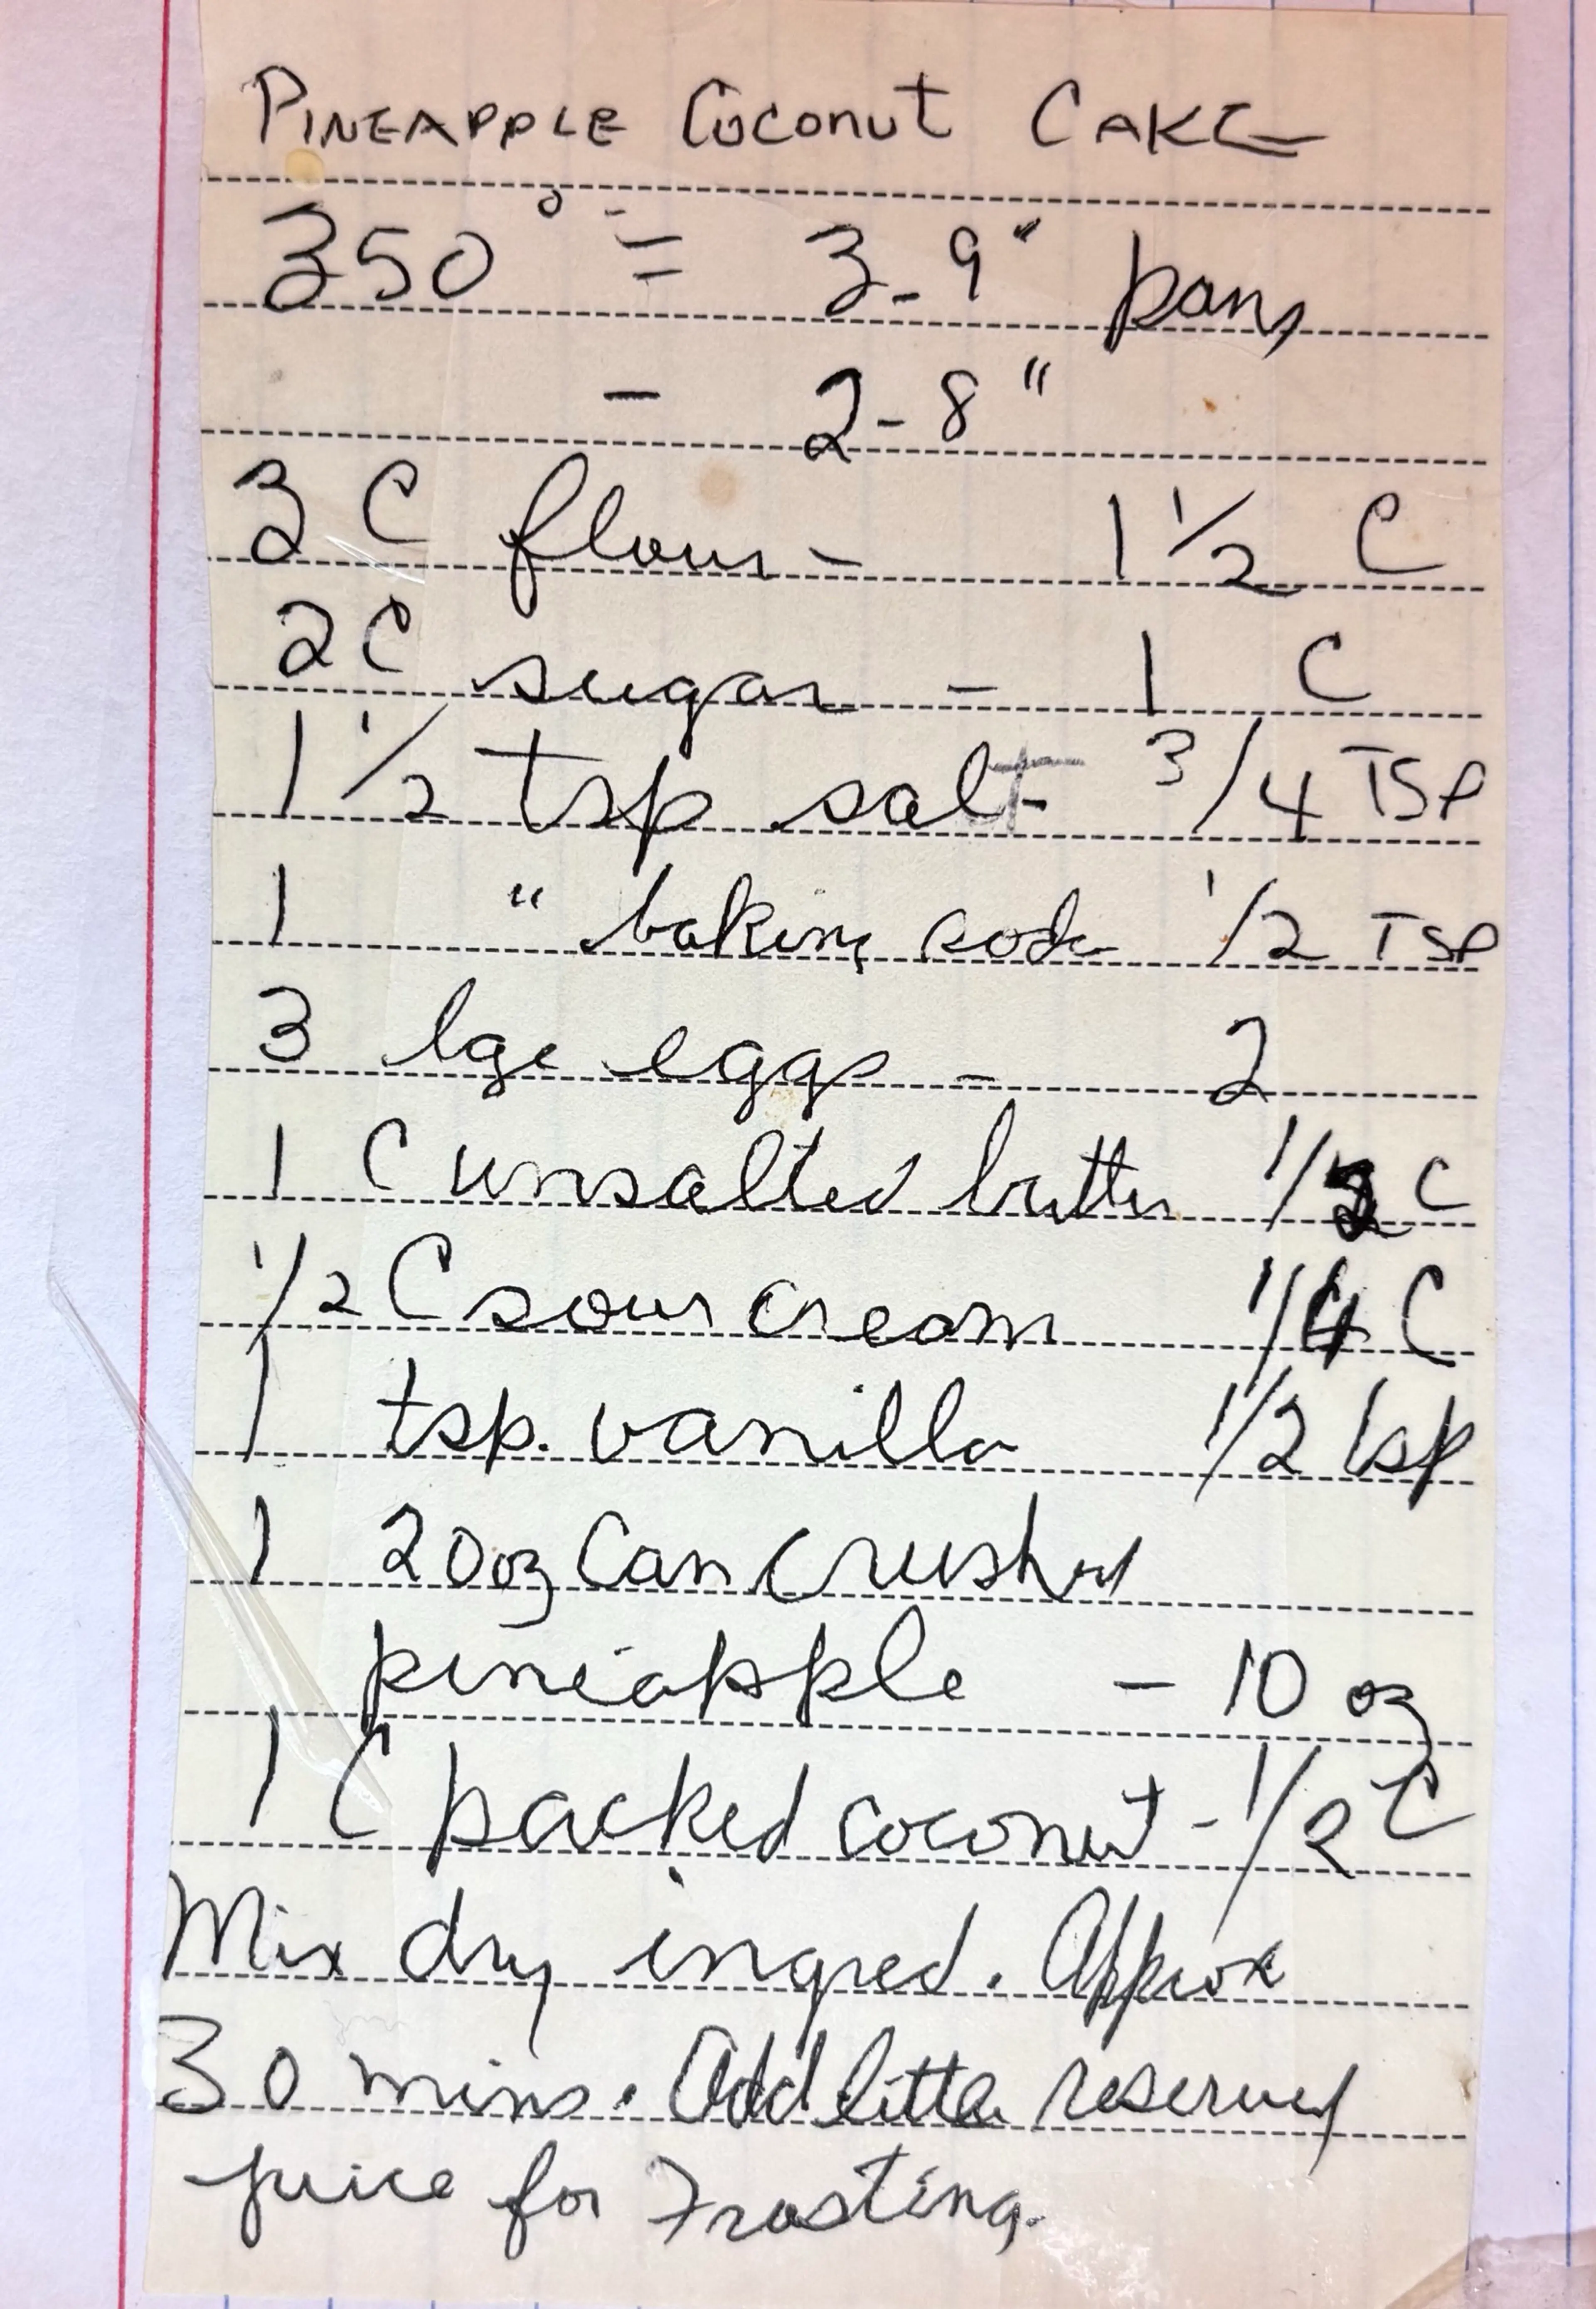 PINEAPPLE COCONUT CAKE
350° = 3-9" pans
- 2-8"
3 C flour - 1 1/2 C
2 C sugar - 1 C
1 1/2 tsp salt - 3/4 TSP
1 " baking soda 1/2 TSP
3 lge eggs - 2
1 C unsalted butter 1/2 C
1/2 C sour cream 1/4 C
1 tsp. vanilla 1/2 tsp
1 20 oz Can crushed
pineapple - 10 oz
1 C packed coconut - 1/2 C
Mix dry ingred. Approx
30 mins. Add little reserved
juice for Frosting.